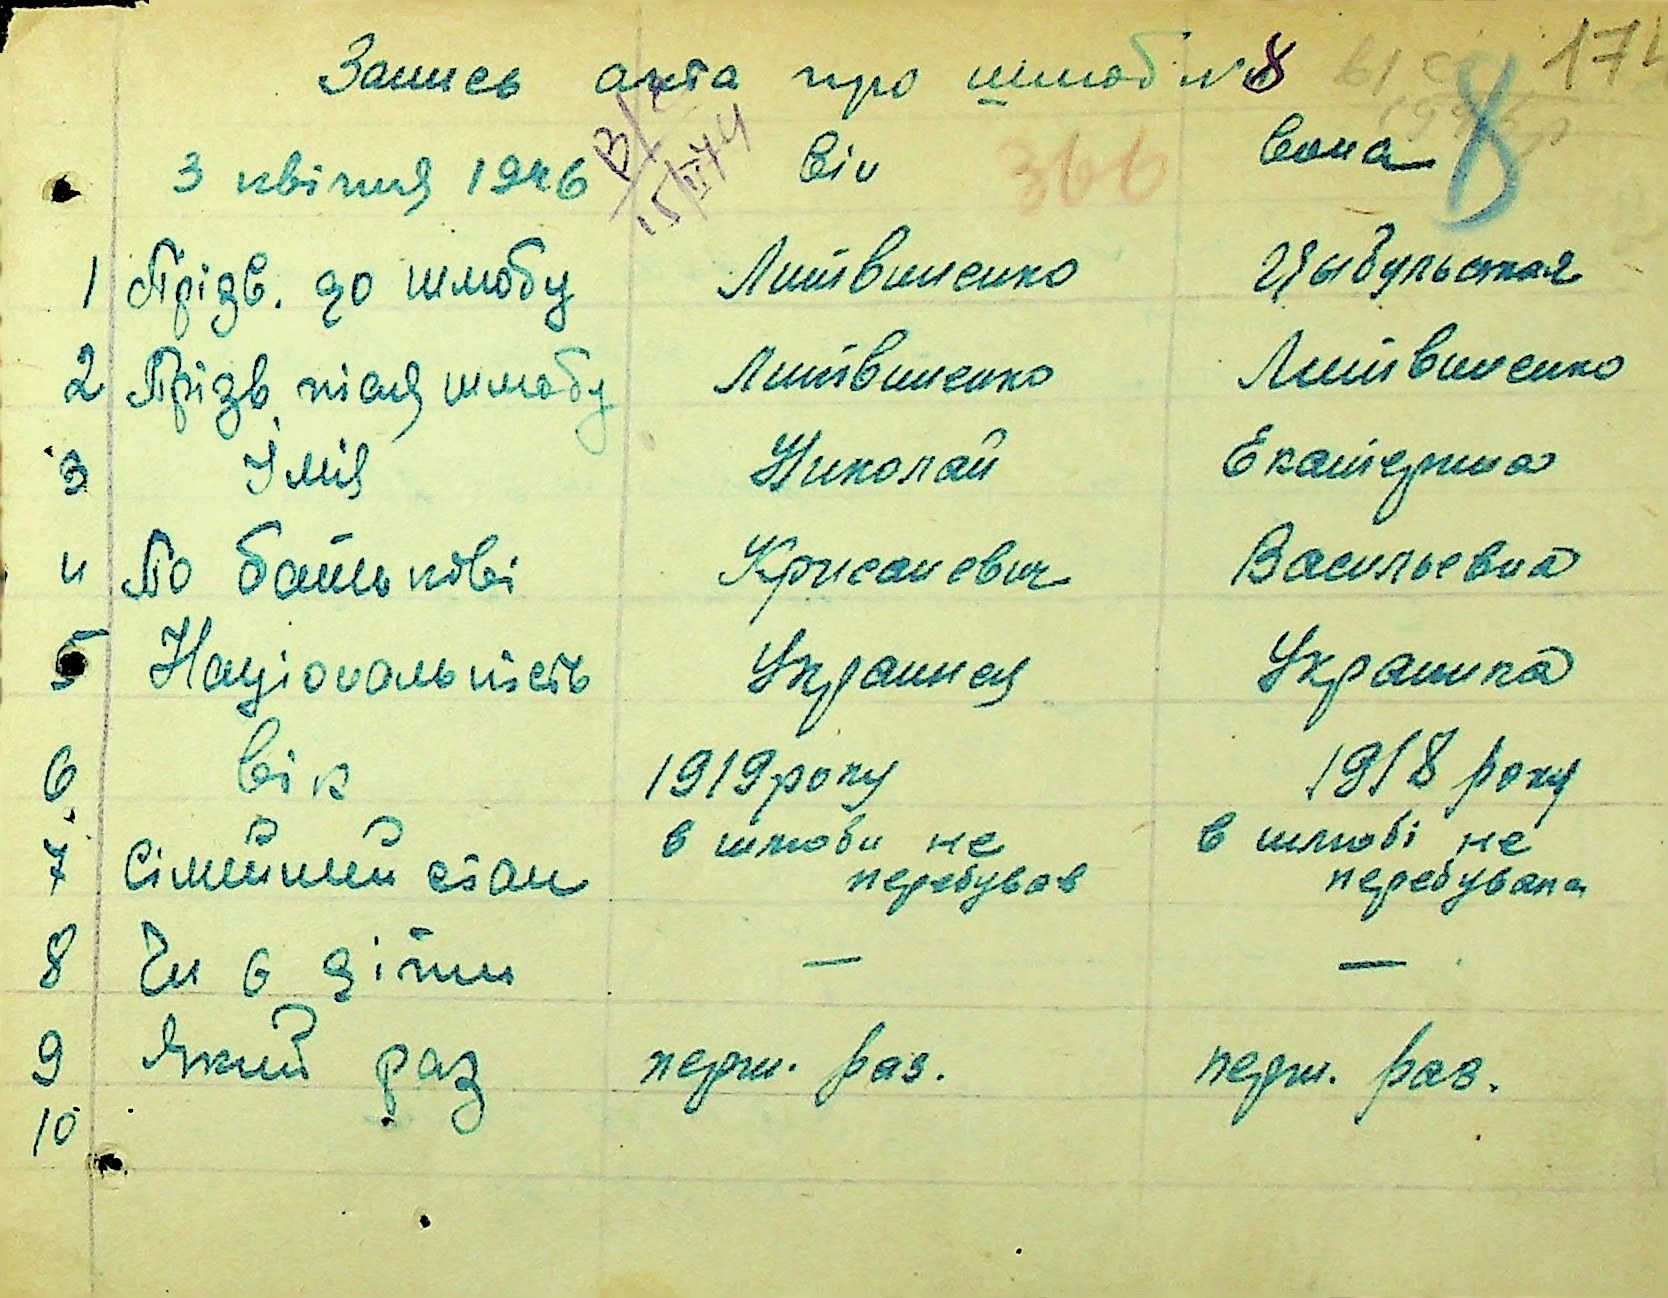 Запись акта про шлюб № 8
3 квітня 1946 Він Вона
366
8
1 Прізв. до шлюбу Литвиненко Цыбульская
2 Прізв після шлюбу Литвиненко Литвиненко
3 Імія Николай Екатерина
4 По батькові Крисаневич Васильевна
5 Національність Украинец Украинка
6 Вік 1919 року 1918 року
7 Сімейний стан в шлюби не перебував в шлюбі не перебувала
8 Чи є діти — —
9 Який раз перш. раз. перш. раз.
10